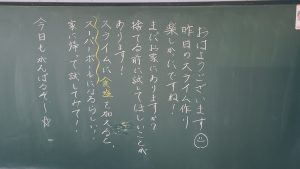 おはようございます
昨日のスライム作り
楽しかったですね!
まだお家にありますか?
捨てる前に試してほしいことが
あります!
スライムに食塩を加えると、
スーパーボールになるらしい!
家に帰って試してみて!
今日もがんばるぞー☆